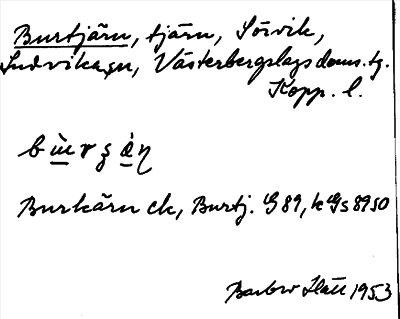 Burtjärn, tjärn, Sörvik,
Ludvika sn, Västerbergslags doms. tg.
Kopp. l.
Burkärn ck, Burtj. G 89, k Gs 8950
1953